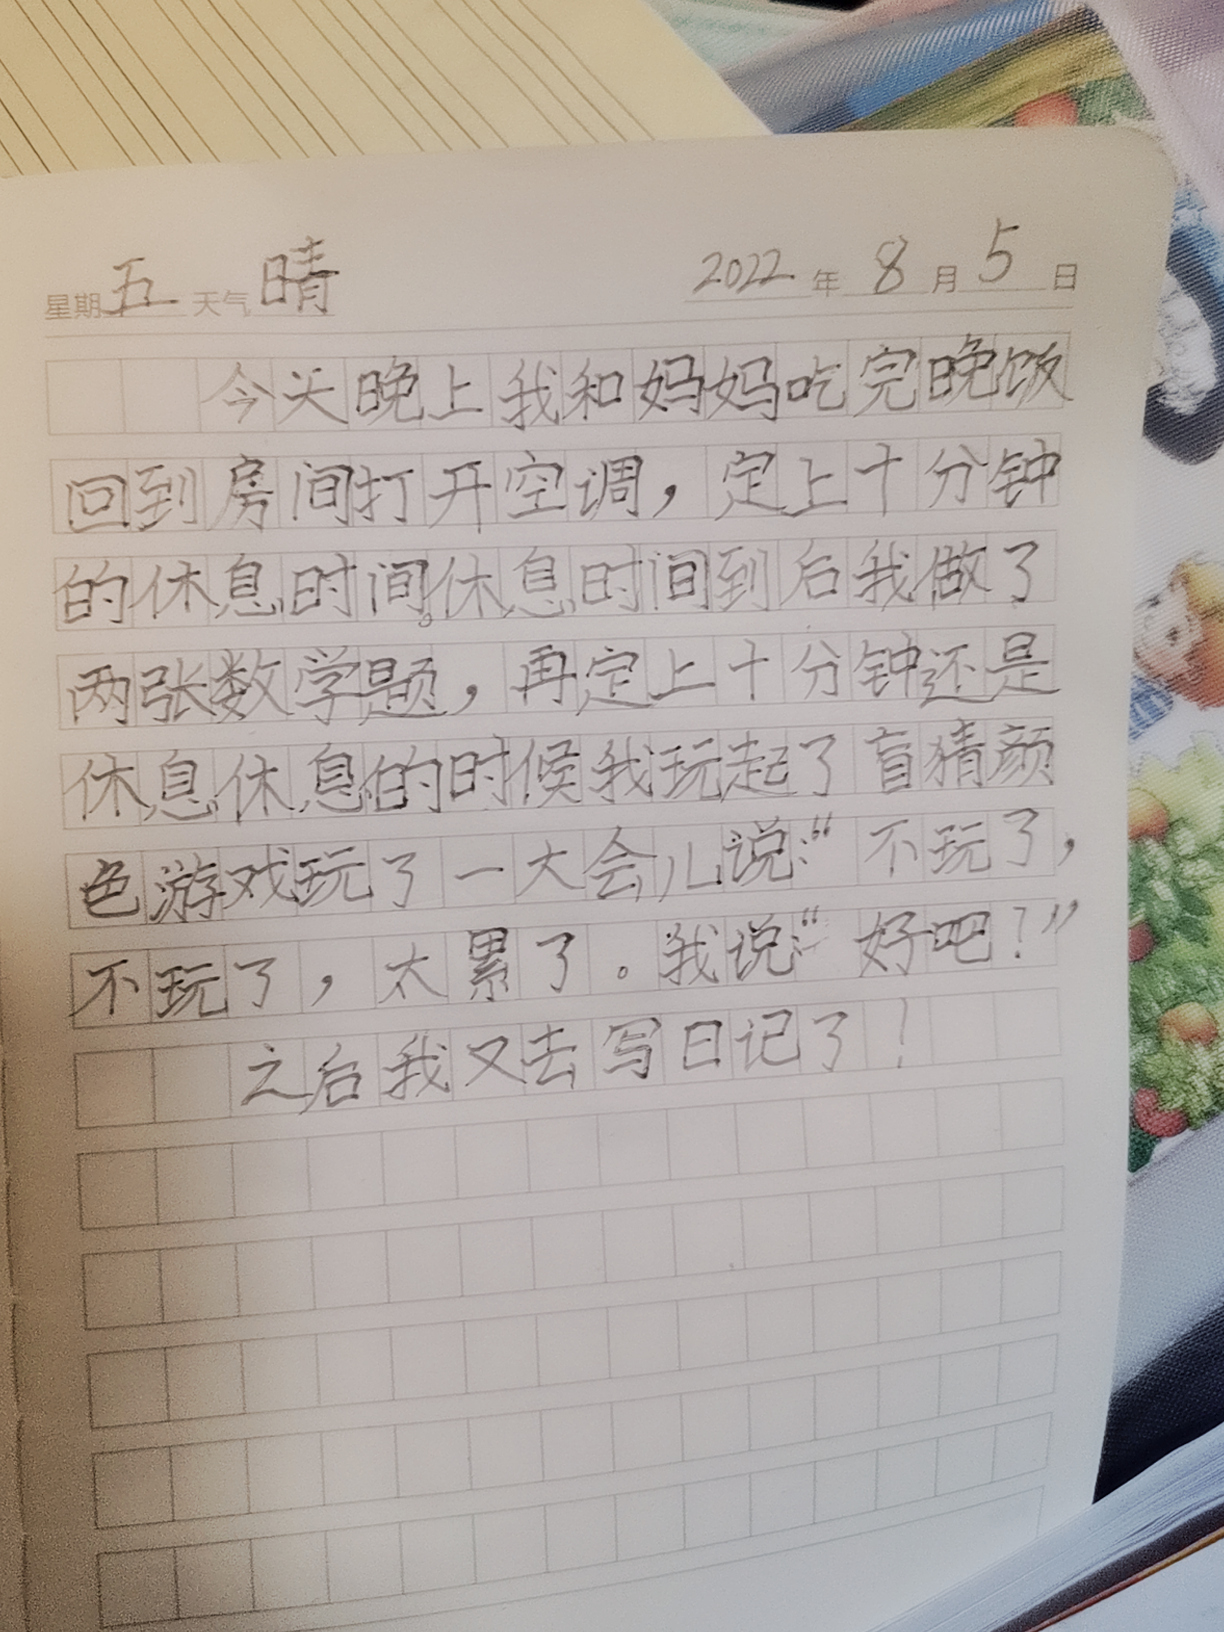 星期五 天气晴 2022年8月5日
今天晚上我和妈妈吃完晚饭
回到房间打开空调，定上十分钟
的休息时间。休息时间到后我做了
两张数学题，再定上十分钟还是
休息休息的时候我玩起了盲猜颜
色游戏玩了一大会儿说：“不玩了，
不玩了，太累了。我说：“好吧！”
之后我又去写日记了！